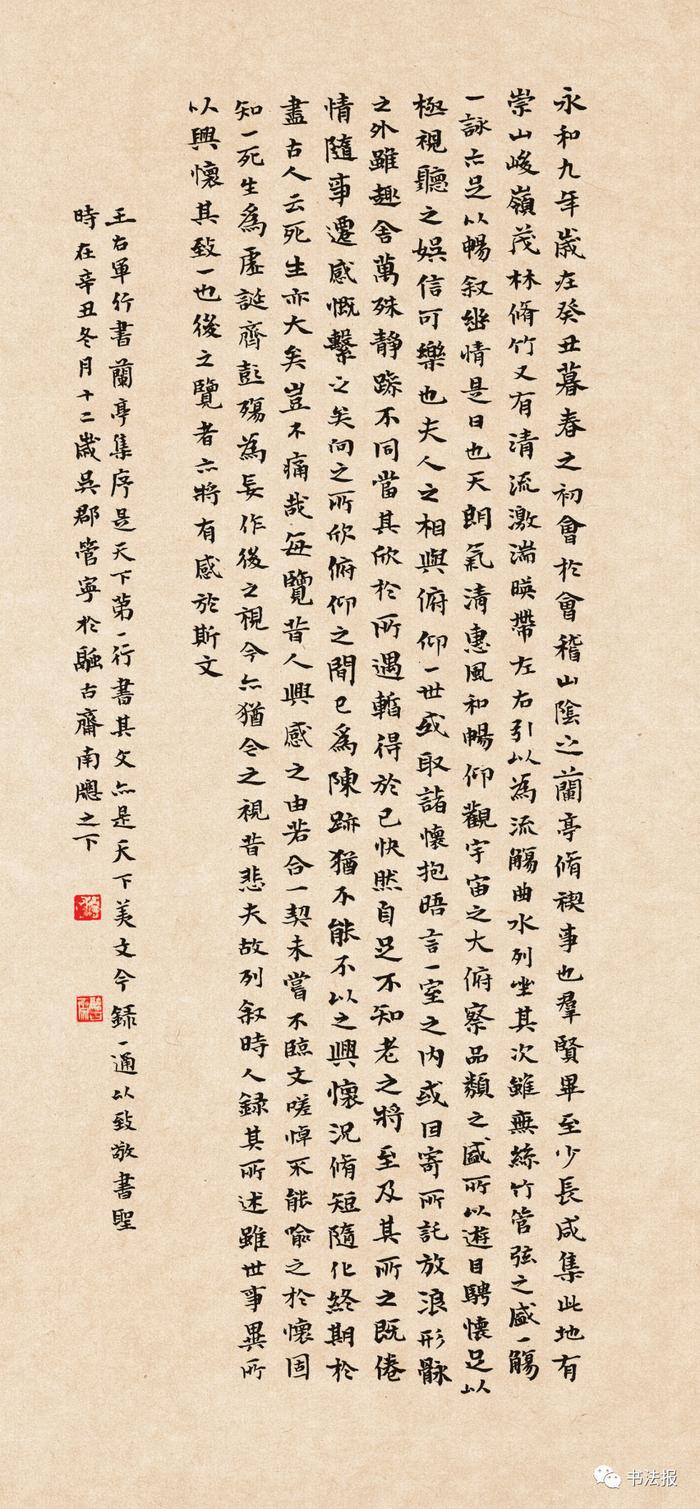 永和九年歲在癸丑暮春之初會於會稽山陰之蘭亭脩禊事也羣賢畢至少長咸集此地有
崇山峻嶺茂林脩竹又有清流激湍暎帶左右引以為流觴曲水列坐其次雖無絲竹管弦之盛一觴
一詠亦足以暢叙幽情是日也天朗氣清惠風和暢仰觀宇宙之大俯察品類之盛所以遊目騁懷足以
極視聽之娛信可樂也夫人之相與俯仰一世或取諸懷抱晤言一室之內或因寄所託放浪形骸
之外雖趣舍萬殊靜躁不同當其欣於所遇暫得於己快然自足不知老之將至及其所之既倦
情隨事遷感慨繫之矣向之所欣俯仰之間已為陳跡猶不能不以之興懷況脩短隨化終期於
盡古人云死生亦大矣豈不痛哉每覽昔人興感之由若合一契未嘗不臨文嗟悼不能喻之於懷固
知一死生為虛誕齊彭殤為妄作後之視今亦猶今之視昔悲夫故列叙時人錄其所述雖世事異所
以興懷其致一也後之覽者亦將有感於斯文
王右軍行書蘭亭集序是天下第一行書其文亦是天下美文今錄一通以致敬書聖
時在辛丑冬月十二歲吳郡管寧於融古齋南窗之下
书法报